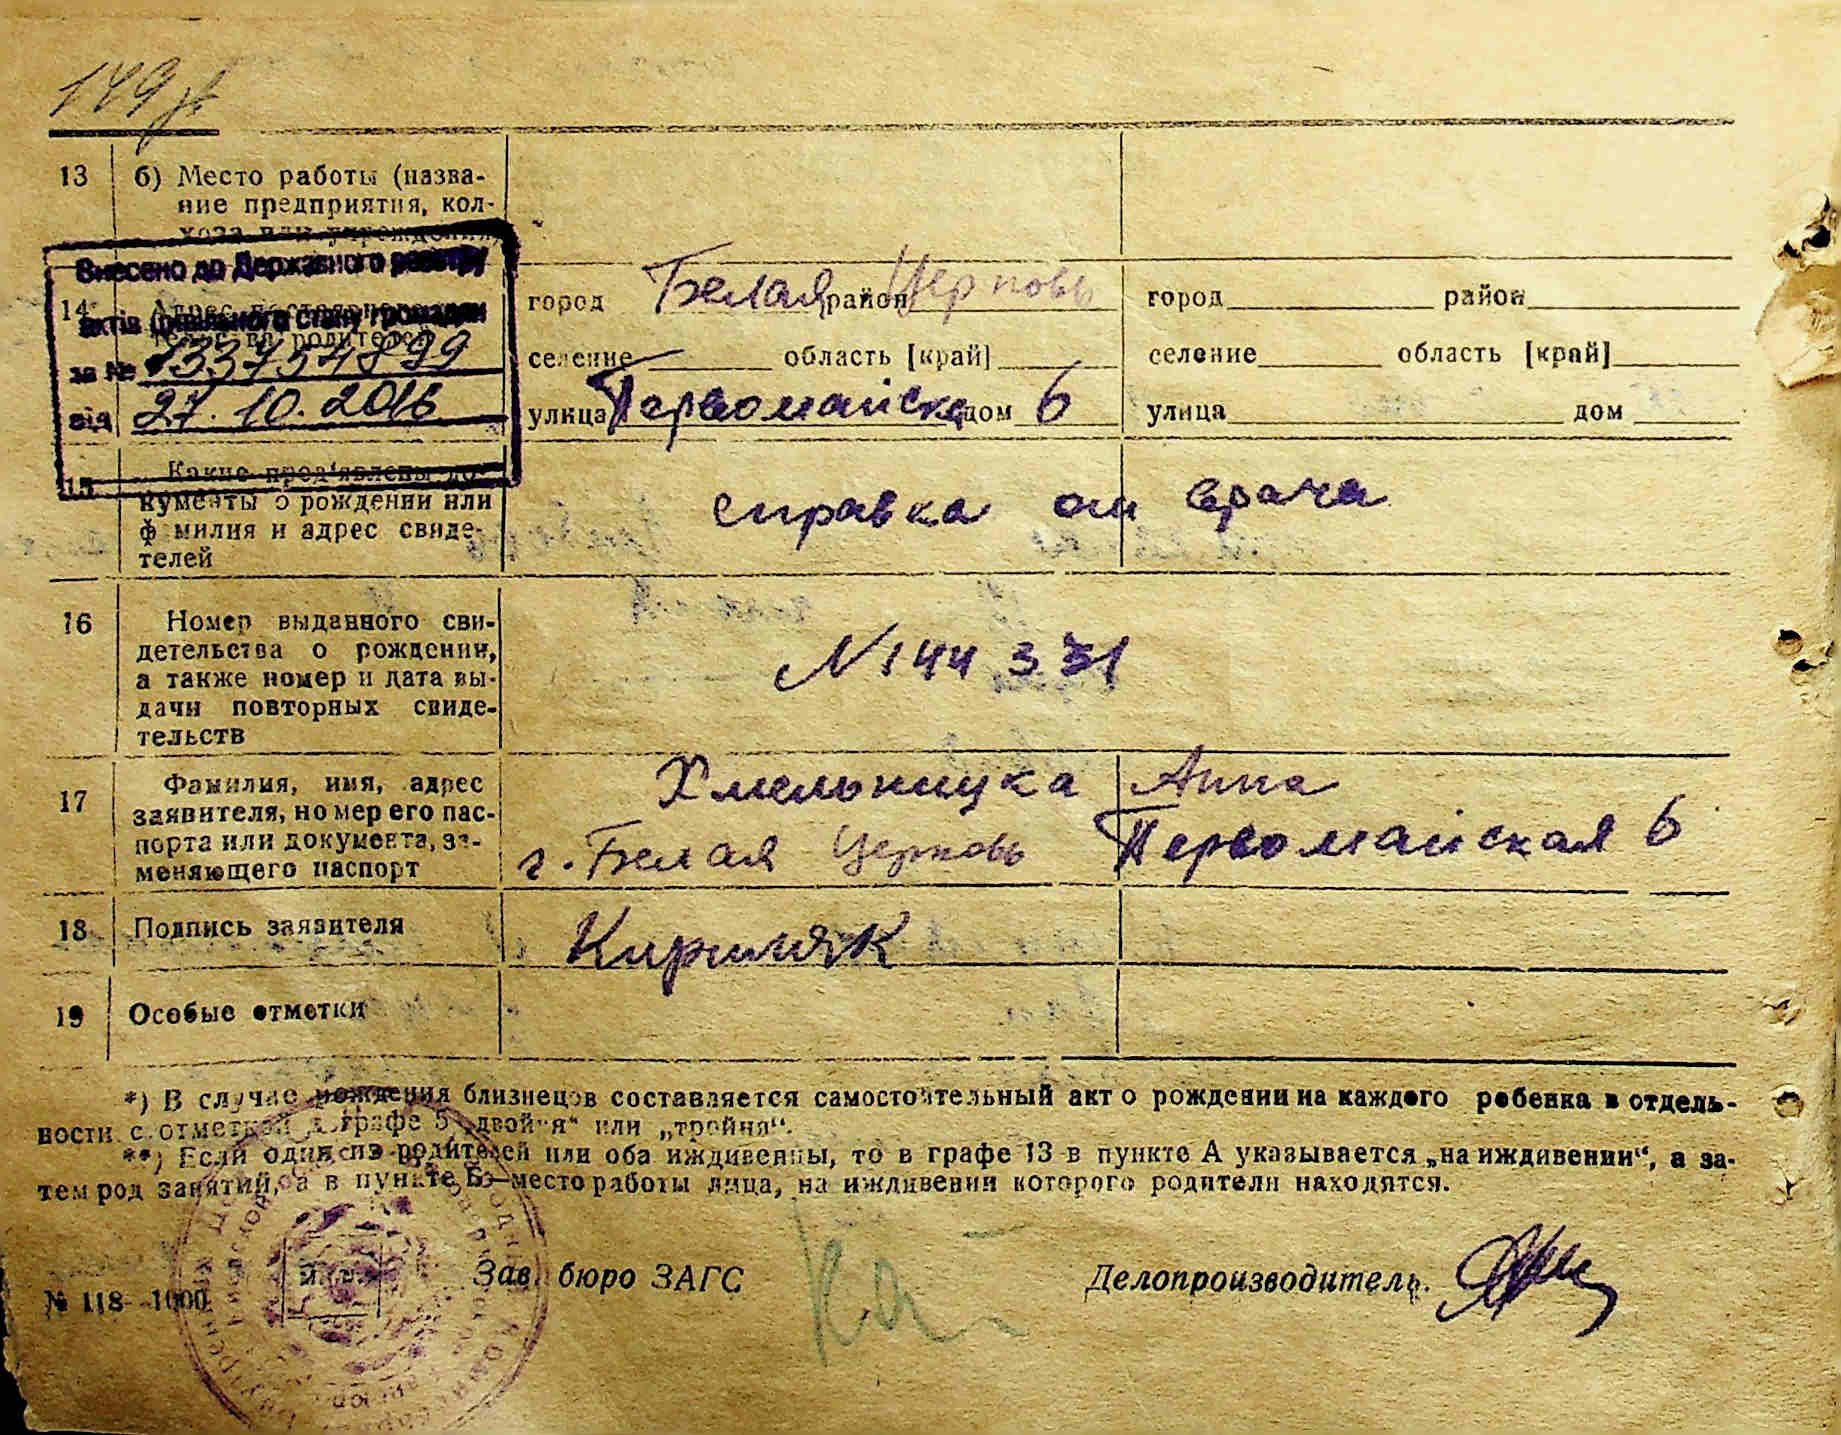 149
13 б) Место работы (назва-
ние предприятия, кол-
хоза или учреждения
Внесено до Державного реєстру
актів цивільного стану громадян
за № 133754899
від 27.10.2016
14
город Белая район Церковь
селение область [край]
улица Первомайска дом 6
город район
селение область [край]
улица дом
15 Какие пред'явлены до-
кументы о рождении или
ф милия и адрес свиде-
телей
справка от врача
16 Номер выданного сви-
детельства о рождении,
а также номер и дата вы-
дачи повторных свиде-
тельств
N 144 331
17 Фамилия, имя, адрес
заявителя, номер его пас-
порта или документа, за-
меняющего паспорт
Хмельницка Анна
г. Белая Церковь Первомайская 6
18 Подпись заявителя
Кириляк
19 Особые отметки
*) В случае рождения близнецов составляется самостоятельный акт о рождении на каждого ребенка в отдель-
ности с отметкой в графе 5 „двойня“ или „тройня“.
**) Если один из родителей или оба иждивенцы, то в графе 13 в пункте А указывается „на иждивении“, а за-
тем род занятий, а в пункте Б—место работы лица, на иждивении которого родители находятся.
М. п.
Зав. бюро ЗАГС
Делопроизводитель.
№ 118—1000